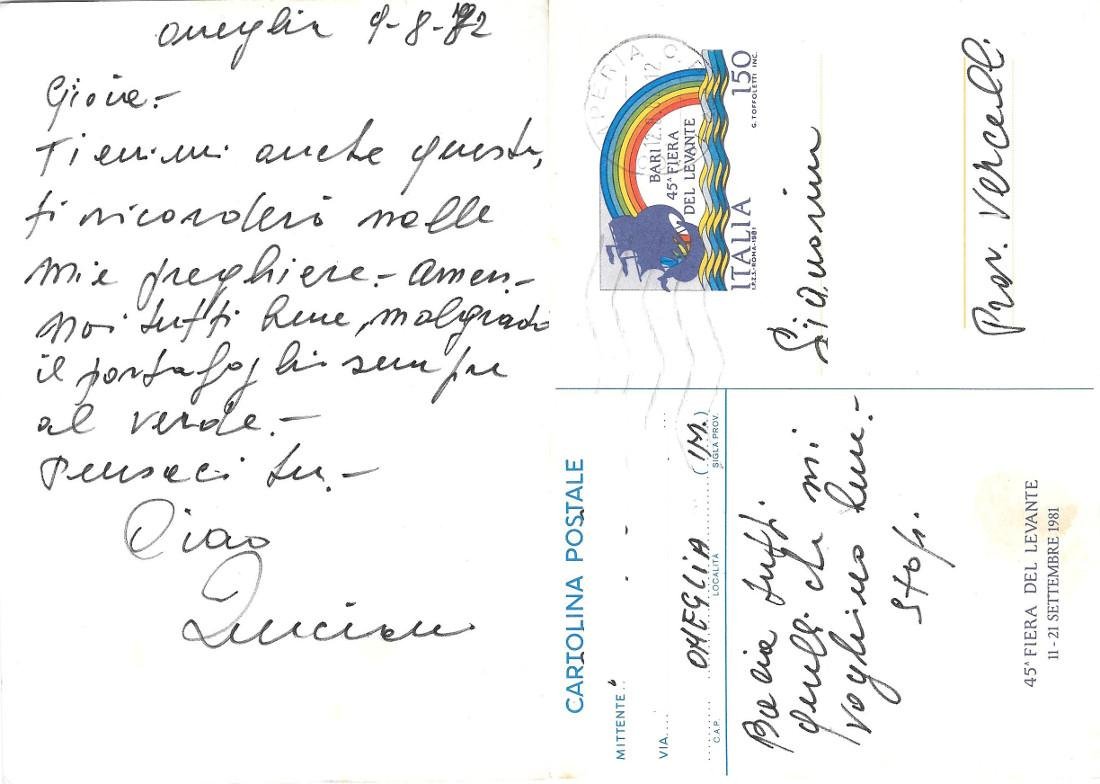 oneglia 9-8-82
Gioia.-
Tienimi anche questa,
ti ricorderò nelle
mie preghiere.- amen.-
Noi tutti bene, malgrado
il portafoglio sempre
al verde.-
Pensaci tu.-
Ciao
Luciano
BARI
45ª FIERA
DEL LEVANTE
ITALIA 150
I.P.Z.S.-ROMA-1981 G. TOFFOLETTI INC.
IMPERIA
Prov. Vercelli
CARTOLINA POSTALE
MITTENTE
VIA
ONEGLIA (IM.)
C.A.P. LOCALITÀ SIGLA PROV.
Bacia tutti
quelli che mi
vogliono bene.-
Stop.
45ª FIERA DEL LEVANTE
11 - 21 SETTEMBRE 1981